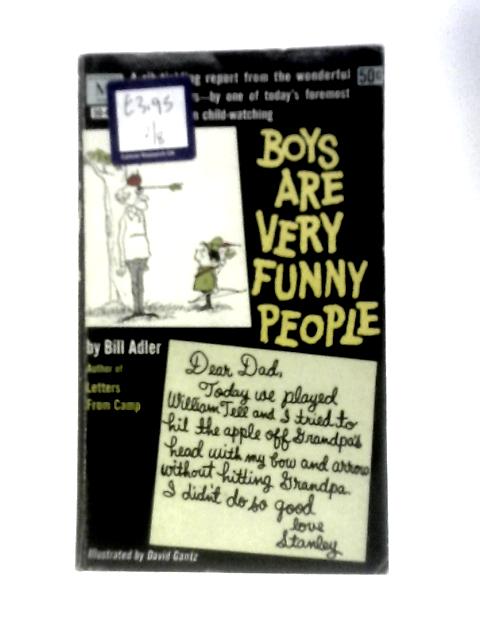 report from the wonderful
50¢
—by one of today's foremost
child-watching
£3.95
BOYS
ARE
VERY
FUNNY
PEOPLE
by Bill Adler
Author of
Letters
From Camp
Dear Dad,
Today we played
William Tell and I tried to
hit the apple off Grandpa's
head with my bow and arrow
without hitting Grandpa.
I didn't do so good
love
Stanley
Illustrated by David Gantz